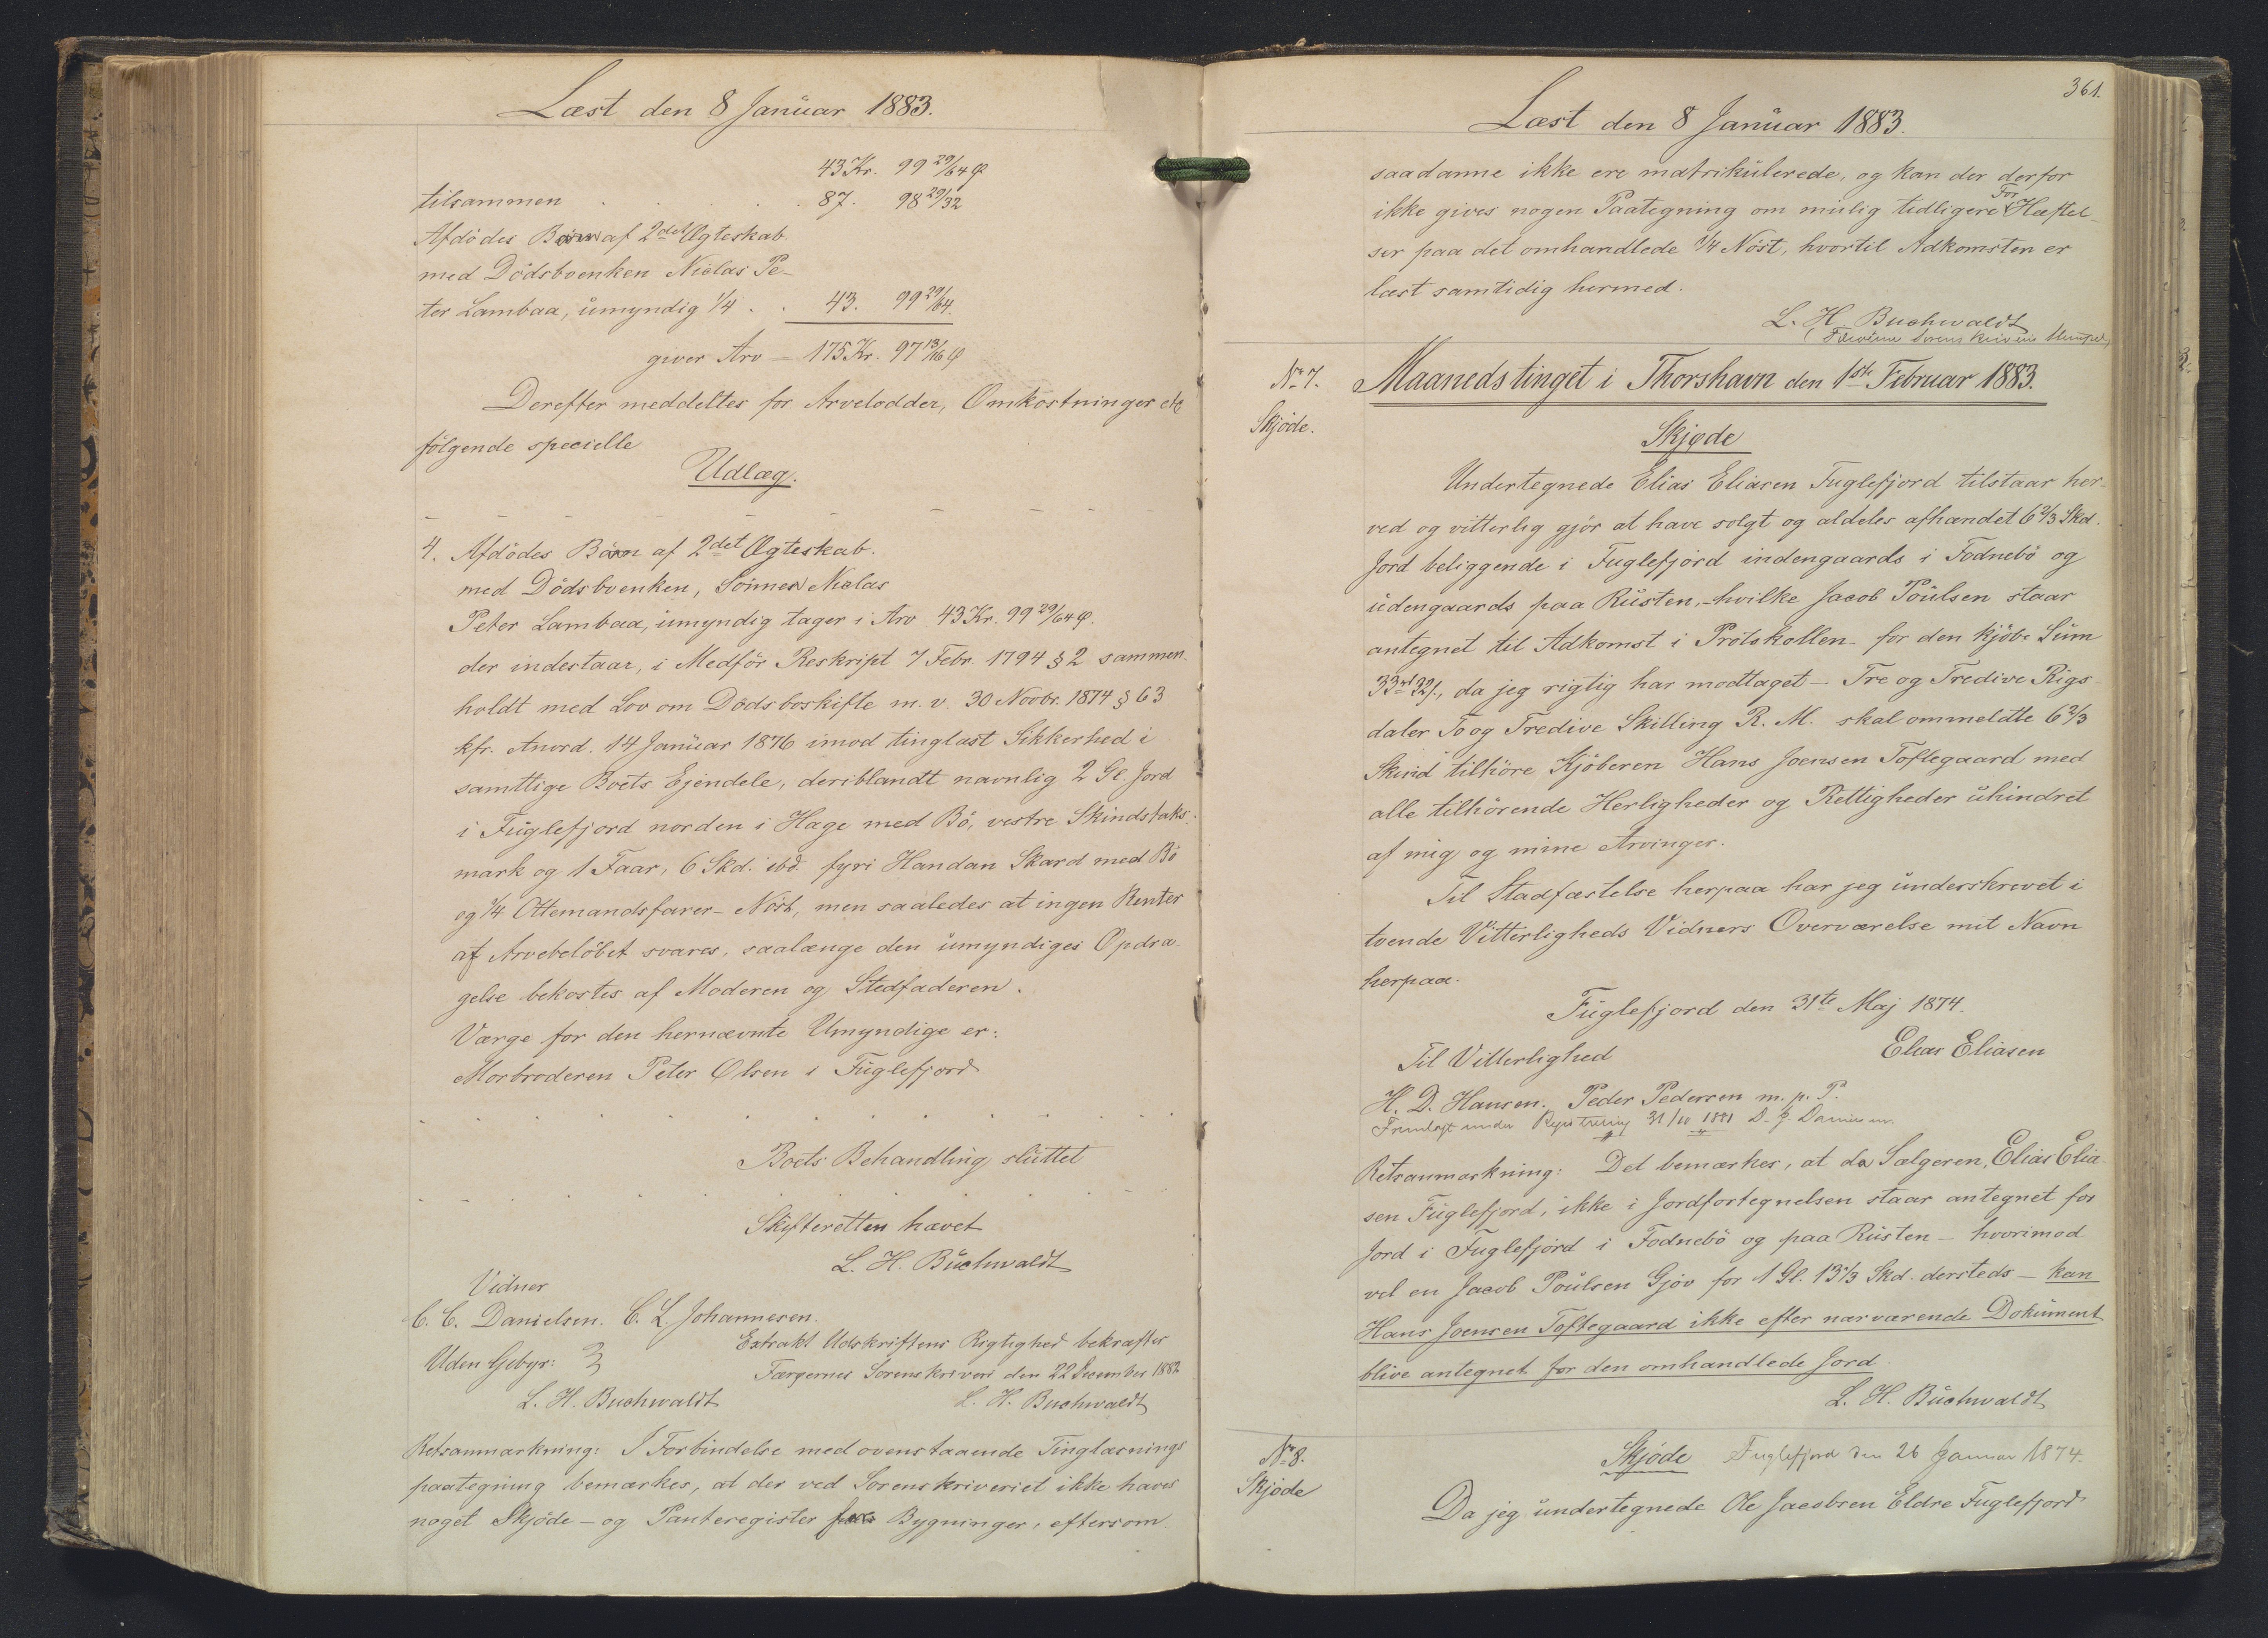 Læst den 8 Januar 1883.
43 Kr. 99 29/64 Ø
tilsammen . . . . 87. 98 29/32
Afdödes Börn af 2det Ægteskab.
med Dödsboenken Nielas Pe-
ter Lambaa, umyndig 1/4 . . 43. 99 29/64.
giver Arv - 175 Kr. 97 13/16 Ø
Derefter meddeltes for Arvelodder, Omkostninger etc
følgende specielle
Udlæg.
4. Afdödes Börn af 2det Ægteskab.
med Dödsboenken, Sönnen Nielas
Peter Lambaa, umyndig tager i Arv 43 Kr. 99 29/64 Ø.
der indestaar, i Medför Reskript 7 Febr. 1794 § 2 sammen-
holdt med Lov om Dödsboskifte m. v. 30 Novbr. 1874 § 63
kfr. Anord. 14 Januar 1876 imod tinglæst Sikkerhed i
samttlige Boets Ejendele, deriblandt navnlig 2 Gl. Jord
i Fuglefjord norden i Hage med Bö, vestre Skindstaks-
mark og 1 Faar, 6 Skd. ibd. fyri Handan Skard med Bö
og 1/4 Ottemandsfarer-Nöst, men saaledes at ingen Renter
af Arvebelöbet svares, saalænge den umyndiges Opdra-
gelse bekostes af Moderen og Stedfaderen.
Værge for den hernævnte Umyndige er:
Morbroderen Peter Olsen i Fuglefjord
Boets Behandling sluttet
Skifteretten hævet
L. H. Buchwaldt
Vidner
C. C. Danielsen. C. L. Johannesen.
Extrakt Udskriftens Rigtighed bekræfter
Uden Gebyr:
Færøernes Sorenskriveri den 22 December 1882
L. H. Buchwaldt L. H. Buchwaldt
Retsanmærkning: I Forbindelse med ovenstaaende Tinglæsnings
paategning bemærkes, at der ved Sorenskriveriet ikke haves
noget Skjöde- og Panteregister for Bygninger, eftersom
361.
Læst den 8 Januar 1883.
saadanne ikke ere matrikulerede, og kan der derfor
ikke gives nogen Paategning om mulig tidligere For Hæftel-
ser paa det omhandlede 1/4 Nöst, hvortil Adkomsten er
læst samtidig hermed.
L. H. Buchwaldt
No 7. Maanedstinget i Thorshavn den 1ste Februar 1883.
Skjöde.
Skjøde
Undertegnede Elias Eliasen Fuglefjord tilstaar her-
ved og vitterlig gjör at have solgt og aldeles afhændet 6 2/3 Skd.
Jord beliggende i Fuglefjord indengaards i Fodnebö og
udengaards paa Rusten, - hvilke Jacob Poulsen staar
antegnet til Adkomst i Protokollen - for den kjöbe Sum
33 rd 32 /, da jeg rigtig har modtaget - Tre og Tredive Rigs-
daler To og Tredive Skilling R. M. skal ommeldte 6 2/3
Skind tilhöre Kjöberen Hans Joensen Toftegaard med
alle tilhörende Herligheder og Rettigheder uhindret
af mig og mine Arvinger.
Til Stadfæstelse herpaa har jeg underskrevet i
tvende Vitterligheds Vidners Overværelse mit Navn
herpaa.
Fuglefjord den 31te Maj 1874.
Til Vitterlighed Elias Eliasen
H. D. Hansen. Peder Pedersen m. p. P.
Fremlagt under Registrering 31/10 1881 D. J. Danielsen.
Retsanmærkning: Det bemærkes, at da Sælgeren, Elias Elia-
sen Fuglefjord, ikke i Jordfortegnelsen staar antegnet for
Jord i Fuglefjord i Fodnebö og paa Rusten - hvorimod
vel en Jacob Poulsen Gjov for 1 Gl. 13 1/3 Skd. dersteds - kan
Hans Joensen Toftegaard ikke efter nærværende Dokument
blive antegnet for den omhandlede Jord.
L. H. Buchwaldt
No 8. Skjöde Fuglefjord den 26 Januar 1874.
Skjöde
Da jeg undertegnede Ole Jacobsen Eldre Fuglefjord